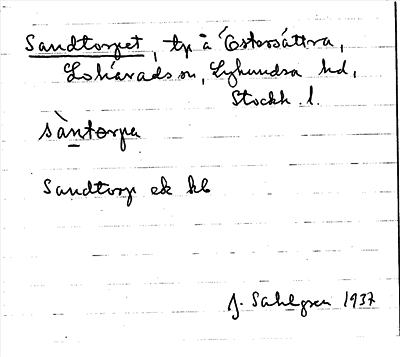 Sandtorpet, tp å Östersättra,
Lohärads sn, Lyhundra hd,
Stockh. l.
sàntorpa
Sandtorp ek kb
J. Sahlgren 1937